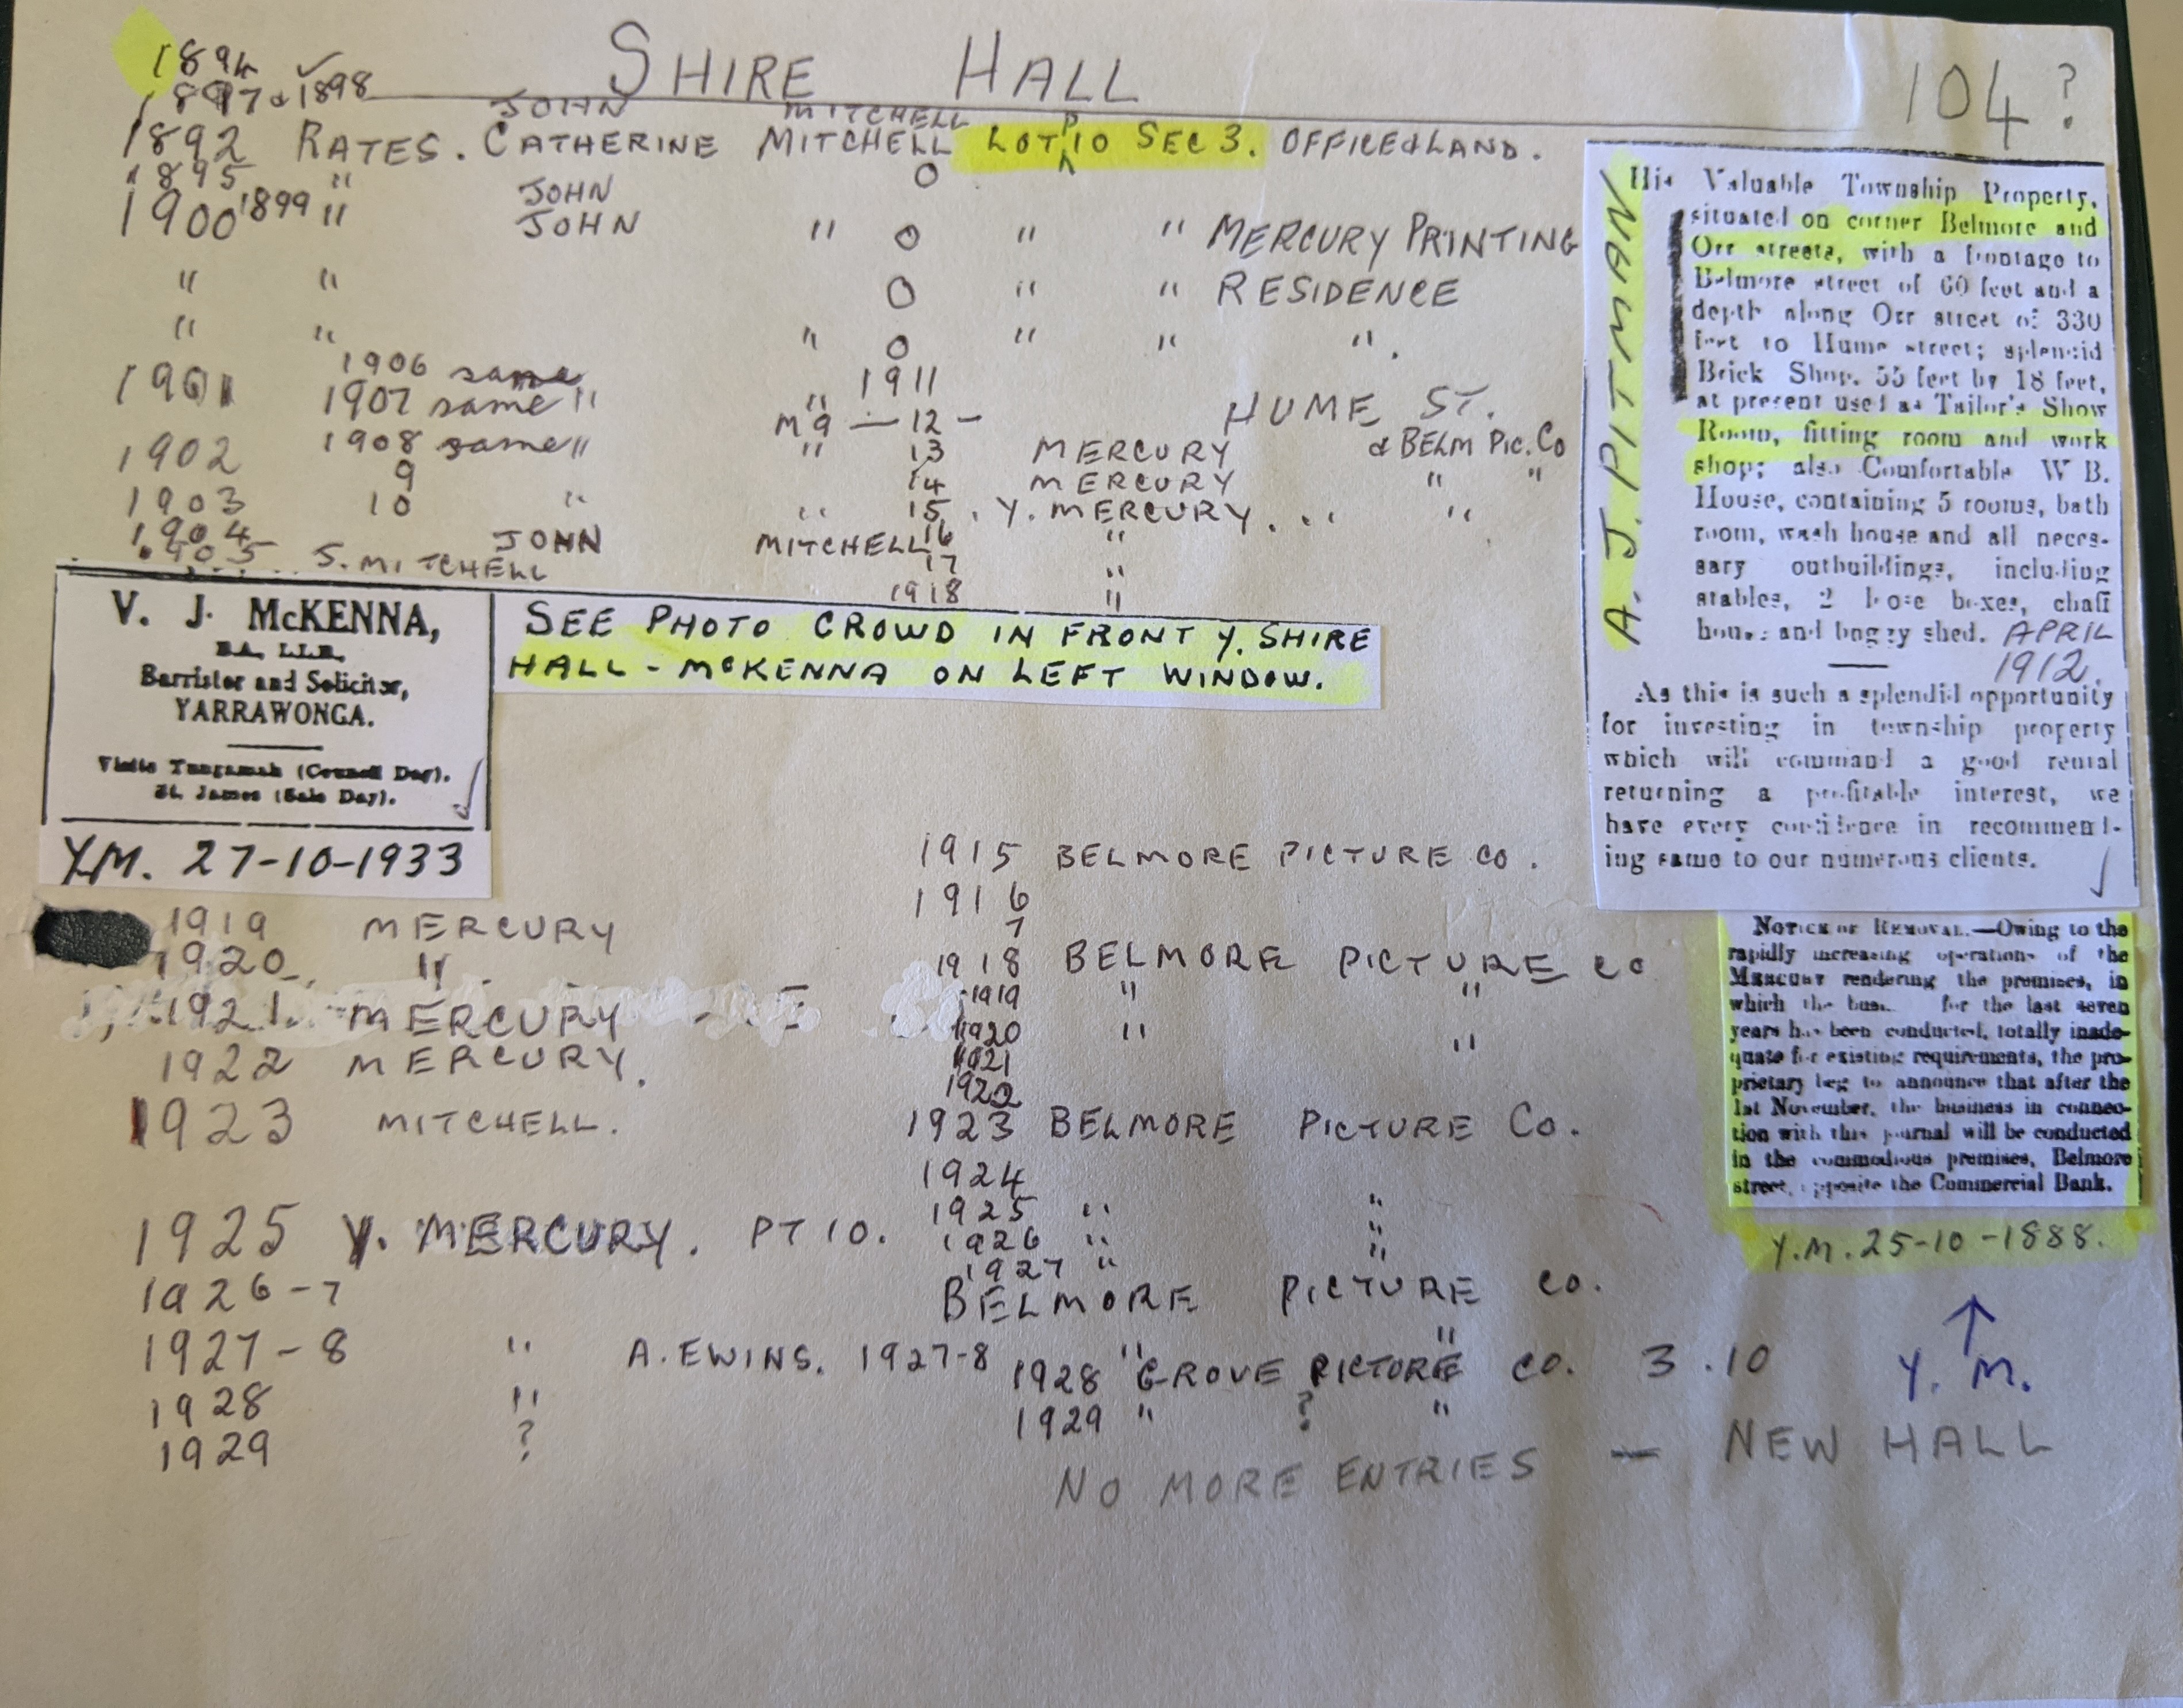 SHIRE HALL
104?
1894
1897 & 1898
JOHN MITCHELL
1892 RATES. CATHERINE MITCHELL LOT P 10 SEC 3. OFFICE & LAND.
1895 " JOHN O
1900 1899 " JOHN " O " " MERCURY PRINTING
" " O " " RESIDENCE
" " " O " " ".
1906 same 1911
1901 1907 same " " HUME ST.
M9 — 12 -
1902 1908 same " " 13 MERCURY & BELM PIC. CO
9 14 MERCURY " "
1903 10 " " 15. Y. MERCURY. " "
1904 JOHN MITCHELL 16 "
1905 S. MITCHELL 17 "
1918 "
V. J. McKENNA,
B.A., LL.B.,
Barrister and Solicitor,
YARRAWONGA.
Visits Tungamah (Council Day).
St. James (Sale Day).
Y.M. 27-10-1933
SEE PHOTO CROWD IN FRONT Y. SHIRE
HALL - McKENNA ON LEFT WINDOW.
A. J.
His Valuable Township Property,
situated on corner Belmore and
Orr streets, with a frontage to
Belmore street of 60 feet and a
depth along Orr street of 330
feet to Hume street; splendid
Brick Shop, 55 feet by 18 feet,
at present used as Tailor's Show
Room, fitting room and work
shop; also Comfortable W B.
House, containing 5 rooms, bath
room, wash house and all neces-
sary outbuildings, including
stables, 2 loose boxes, chaff
house and buggy shed. APRIL
1912.
As this is such a splendid opportunity
for investing in township property
which will command a good rental
returning a profitable interest, we
have every confidence in recommend-
ing same to our numerous clients.
NOTICE OF REMOVAL.—Owing to the
rapidly increasing operations of the
MERCURY rendering the premises, in
which the bus... for the last seven
years has been conducted, totally inade-
quate for existing requirements, the pro-
prietary beg to announce that after the
1st November, the business in connec-
tion with this journal will be conducted
in the commodious premises, Belmore
street, opposite the Commercial Bank.
Y.M. 25-10-1888.
Y. M.
1919 MERCURY
1920 "
1921 MERCURY
1922 MERCURY.
1923 MITCHELL.
1925 Y. MERCURY. PT 10.
1926-7
1927-8 " A. EWINS. 1927-8
1928 "
1929 ?
1915 BELMORE PICTURE CO.
1916
7
1918 BELMORE PICTURE CO
1919 " "
1920 " "
1921
1922
1923 BELMORE PICTURE CO.
1924
1925 " "
1926 " "
1927 " "
BELMORE PICTURE CO.
" "
1928 GROVE PICTURE CO. 3.10
1929 " ? "
NO MORE ENTRIES — NEW HALL